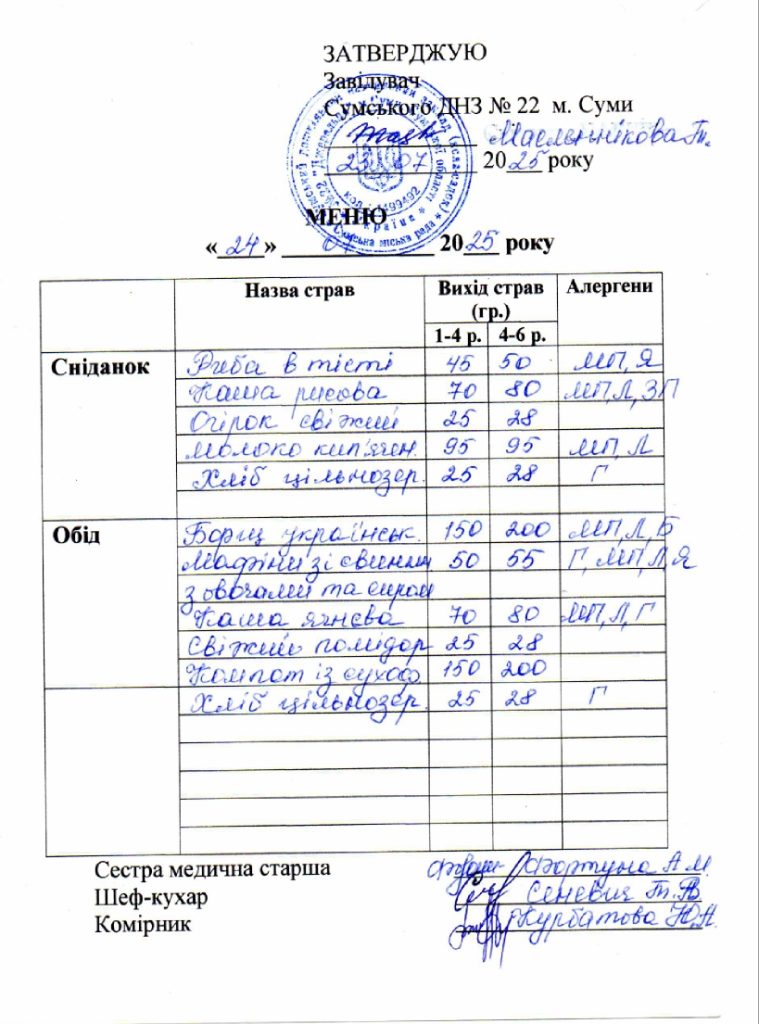 ЗАТВЕРДЖУЮ
Завідувач
Сумського ДНЗ № 22 м. Суми
Масленнікова Т.
23 07 2025 року
МЕНЮ
«24» 07 2025 року
Назва страв Вихід страв (гр.) Алергени
1-4 р. 4-6 р.
Сніданок Риба в тісті 45 50 МП, Я
Каша рисова 70 80 МП, Л, ЗП
Огірок свіжий 25 28
Молоко кип'ячен. 95 95 МП, Л
Хліб цільнозер. 25 28 Г
Обід Борщ українськ. 150 200 МП, Л, Б
Мафіни зі свинини 50 55 Г, МП, Л, Я
з овочами та сиром
Каша ячнєва 70 80 МП, Л, Г
Свіжий помідор 25 28
Компот із сухоф. 150 200
Хліб цільнозер. 25 28 Г
Сестра медична старша Фортуна А.М.
Шеф-кухар Сеневич Т.В.
Комірник Курбатова Ю.А.